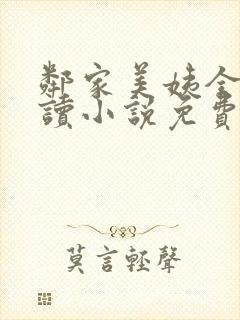 鄰家美姨全
讀小說免費
莫言輕聲